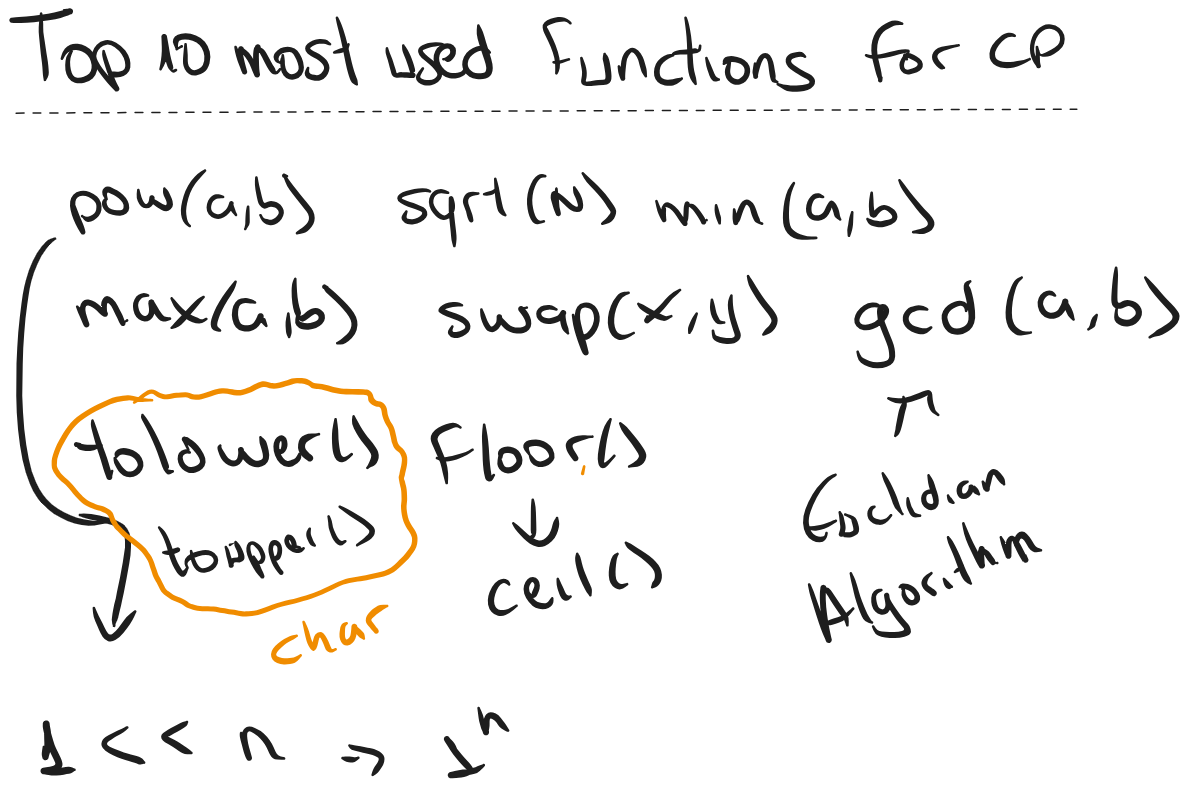 Top 10 most used functions for CP
pow(a,b) sqrt(N) min(a,b)
max(a,b) swap(x,y) gcd(a,b)
tolower() Floor()
toupper() ceil()
char
Euclidian
Algorithm
1 << n → 1^n